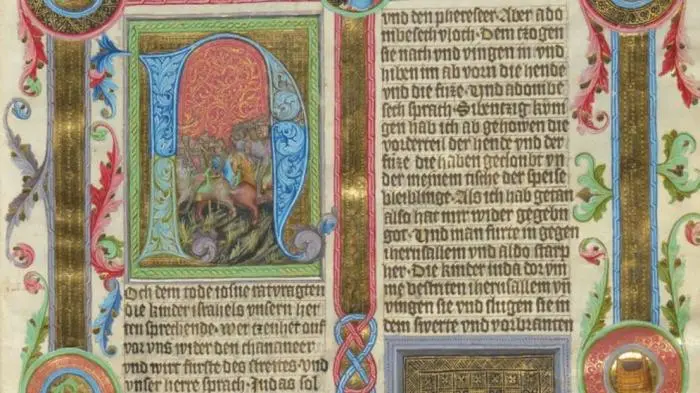 N
och dem tode iosue ratvragten
die kinder israhels vnsern her
ren sprechende · wer czeuhet auf
vor vns wider den chananeer
vnd wirt fürste des streites · vnd
vnser herre sprach · Iudas sol
vnd den phereseer Aber ado
nibesech vloch · Dem czogen
sie nach vnd vingen in vnd
hiben im ab vorn die hende
vnd die füze · Vnd adonibe
sech sprach · Sibentzig küni
gen hab ich ab gehowen die
vorderteil der hende vnd der
füze die haben gecloubt vn
der meinem tische der speise
bleiblinge · Als ich hab getan
also hat mir wider gegebn
got · Vnd man furte in gegen
iherusallem vnd aldo starp
her · Die kinder iuda dor vm
me bestriten iherusallem vn̄
vingen sie vnd slugen sie in
dem swerte vnd vorbranten